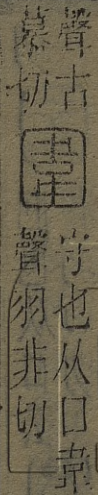 聲古
慕切
圍
守也从囗韋
聲羽非切